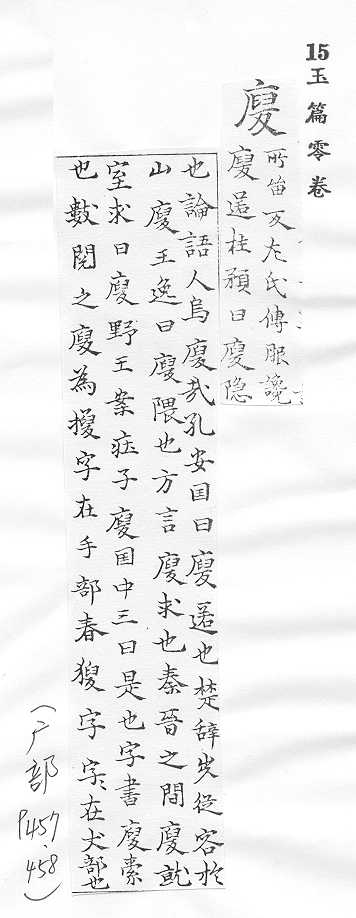 15玉篇零卷
廋
所笛反尤氏傳服讒
廋匿杜預曰廋隐
也論語人烏廋㢤孔安国曰廋迯也楚辞步從容於
山廋王逸曰廋隈也方言廋求也秦晉之間廋就
室求曰廋野王案疰子廋囯中三曰是也字書廋索
也數閲之廋為擾字在手部春獀字字在犬部也
(广部
P457、
458)